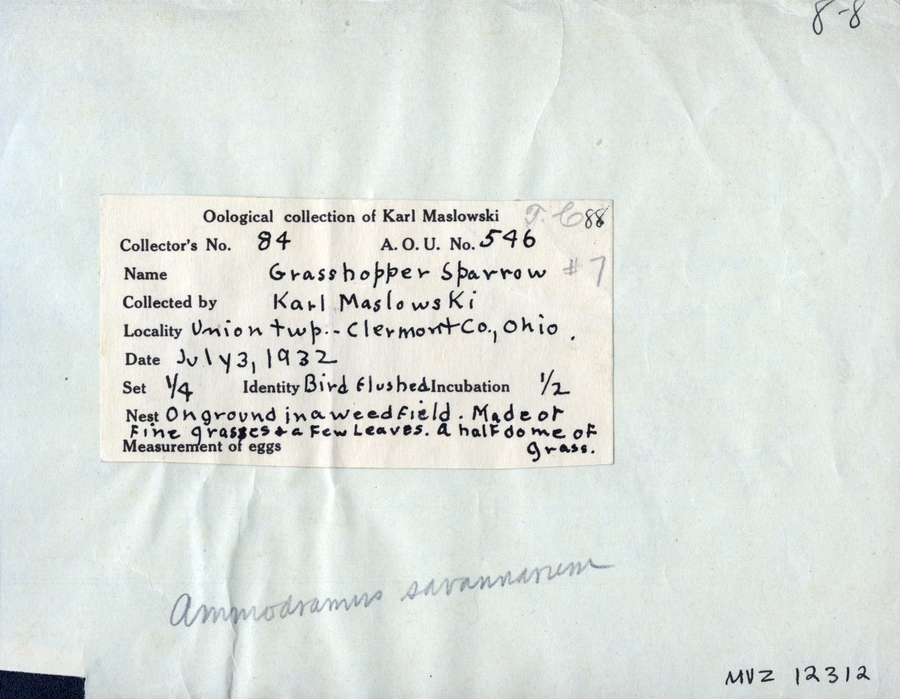 8-8
Oological collection of Karl Maslowski T.C. 88
Collector's No. 84 A. O. U. No. 546
Name Grasshopper Sparrow #7
Collected by Karl Maslowski
Locality Union twp.- Clermont Co., Ohio.
Date July 3, 1932
Set 1/4 Identity Bird flushed Incubation 1/2
Nest On ground in a weed field. Made of
fine grasses & a few leaves. A half dome of
Measurement of eggs grass.
Ammodramus savannarum
MVZ 12312